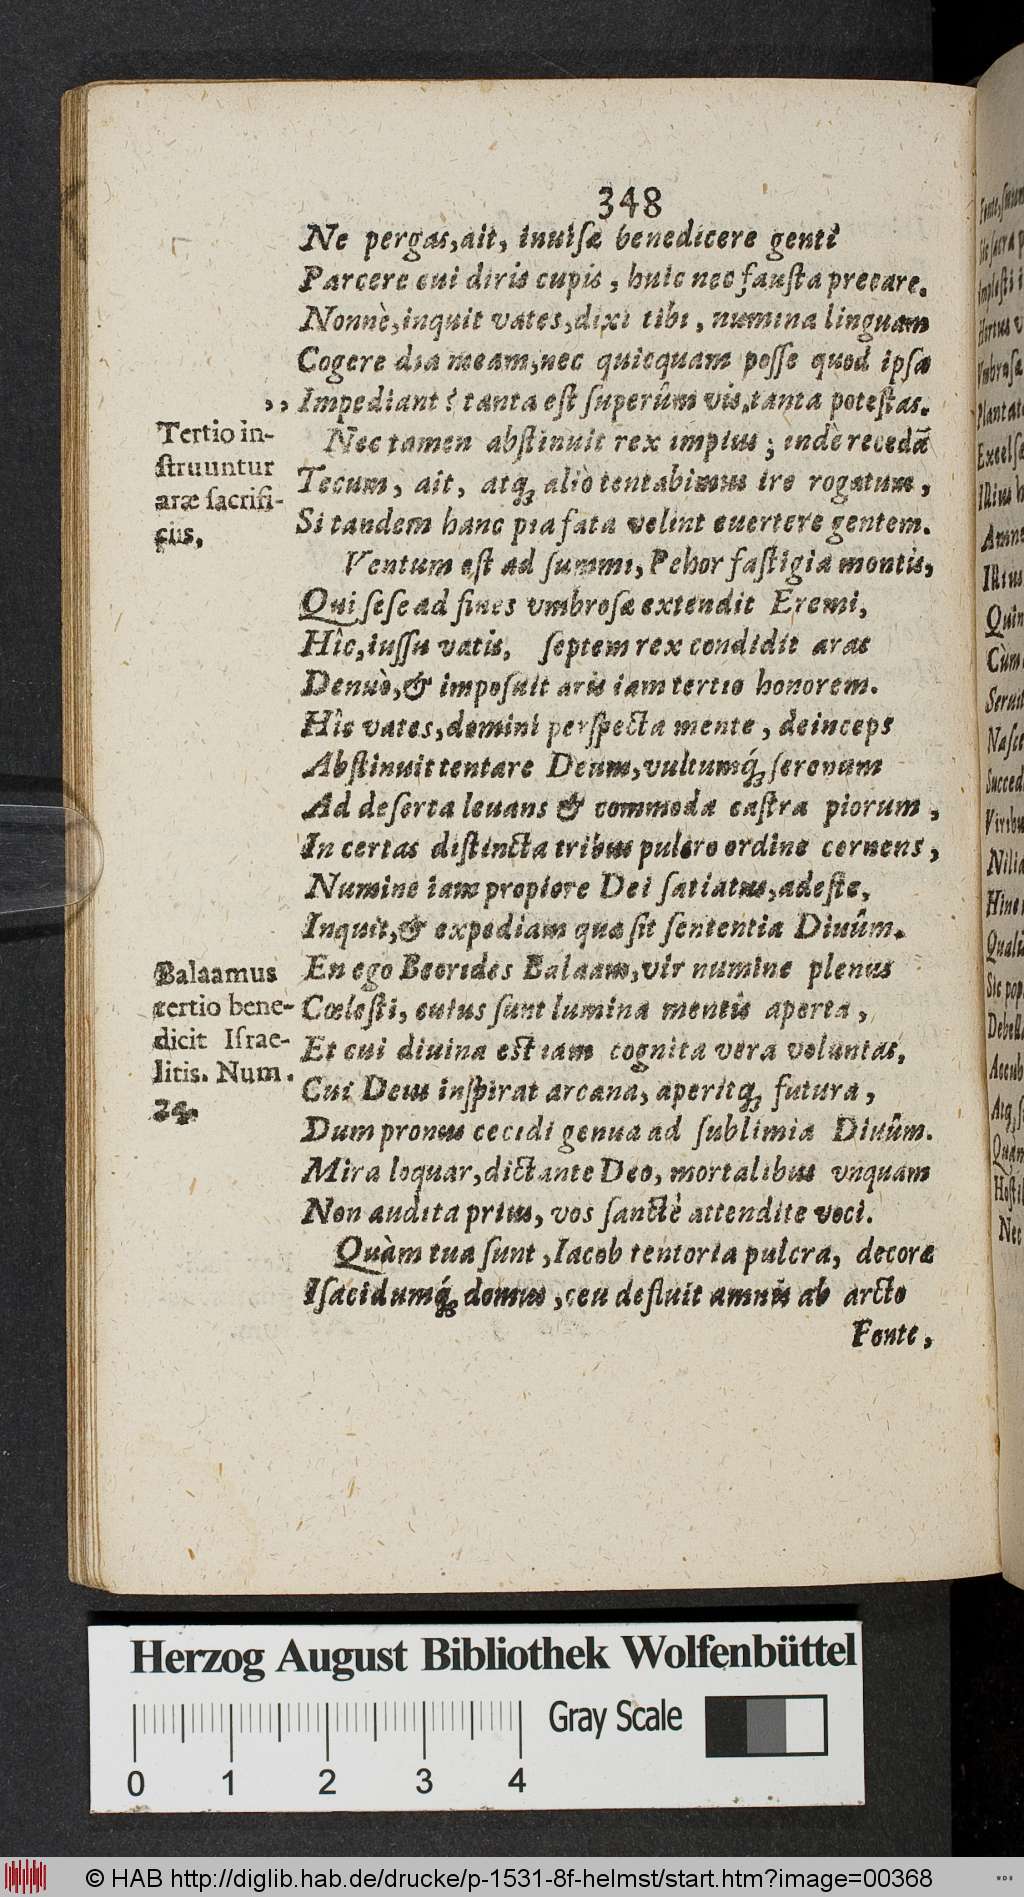 348
Ne pergas, ait, inuisæ benedicere genti
Parcere cui diris cupis, huic nec fausta precare.
Nonnè, inquit vates, dixi tibi, numina linguam
Cogere dia meam, nec quicquam posse quod ipsa
,, Impediant? tanta est superûm vis, tanta potestas.
Tertio in-
struuntur
aræ sacrifi-
ciis,
Nec tamen abstinuit rex impius; indè recedā
Tecum, ait, atq; aliò tentabimus ire rogatum,
Si tandem hanc pia fata velint euertere gentem.
Ventum est ad summi, Pehor fastigia montis,
Qui sese ad fines vmbrosæ extendit Eremi,
Hîc, iussu vatis, septem rex condidit aras
Denuò, & imposuit aris iam tertio honorem.
Hîc vates, domini perspecta mente, deinceps
Abstinuit tentare Deum, vultumq́; serenum
Ad deserta leuans & commoda castra piorum,
In certas distincta tribus pulcro ordine cernens,
Numine iam propiore Dei satiatus, adeste,
Inquit, & expediam quæ sit sententia Diuûm.
Balaamus
tertio bene-
dicit Israe-
litis. Num.
24.
En ego Beorides Balaam, vir numine plenus
Cœlesti, cuius sunt lumina mentis aperta,
Et cui diuina est iam cognita vera voluntas,
Cui Deus inspirat arcana, aperitq; futura,
Dum pronus cecidi genua ad sublimia Diuûm.
Mira loquar, dictante Deo, mortalibus vnquam
Non audita prius, vos sanctè attendite voci.
Quàm tua sunt, Iacob tentoria pulcra, decoræ
Isacidumq́; domus, ceu defluit amnis ab arcto
Fonte,
Herzog August Bibliothek Wolfenbüttel
Gray Scale
0 1 2 3 4
© HAB http://diglib.hab.de/drucke/p-1531-8f-helmst/start.htm?image=00368